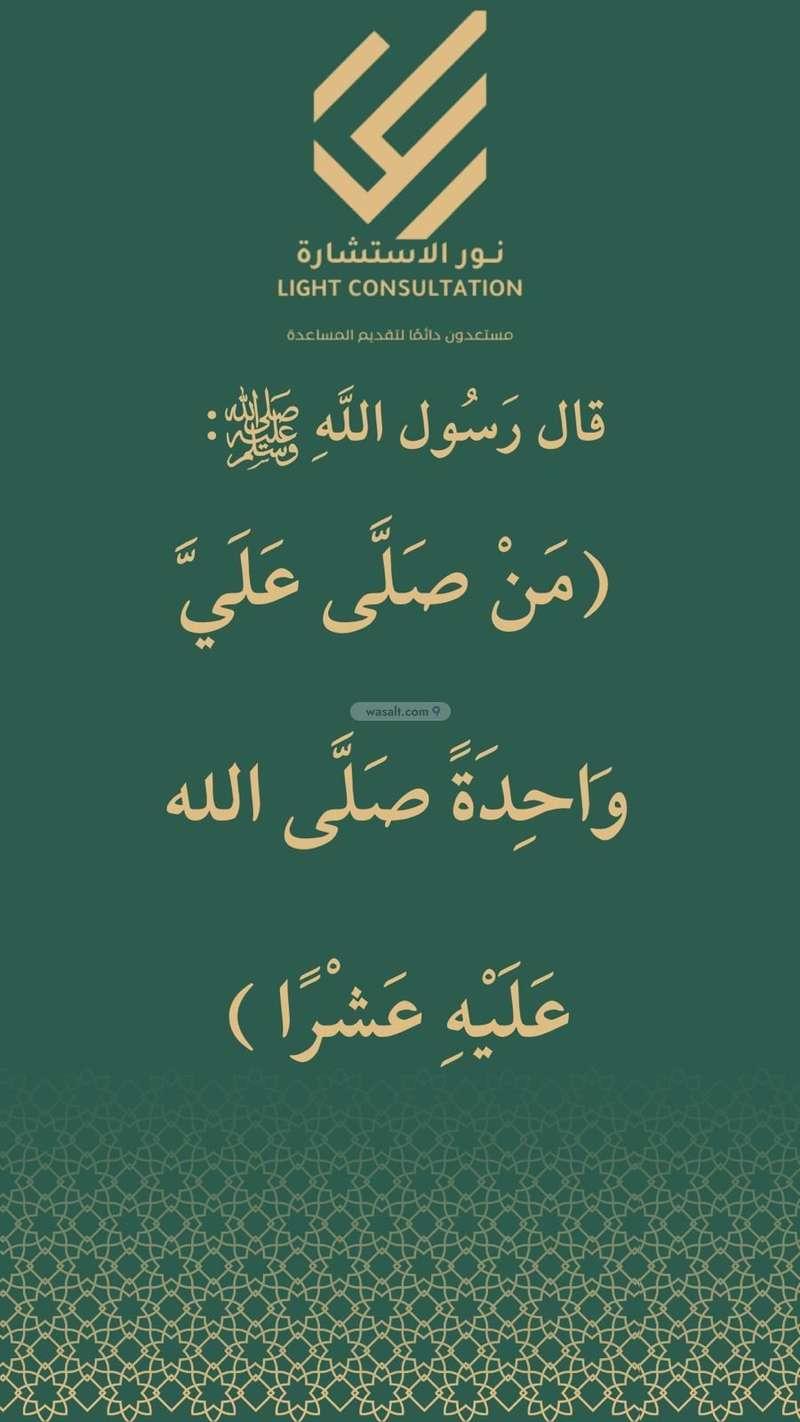 نور الاستشارة
LIGHT CONSULTATION
مستعدون دائمًا لتقديم المساعدة
قال رَسُول اللَّهِ ﷺ:
(مَنْ صَلَّى عَلَيَّ
wasalt.com
وَاحِدَةً صَلَّى الله
عَلَيْهِ عَشْرًا )